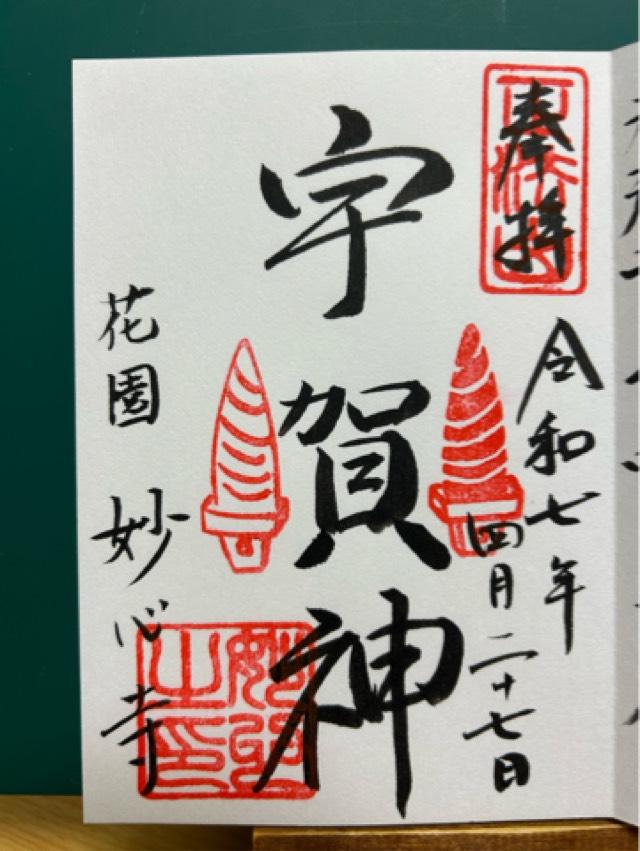 奉拝
令和七年
四月二十七日
宇賀神
花園 妙心寺